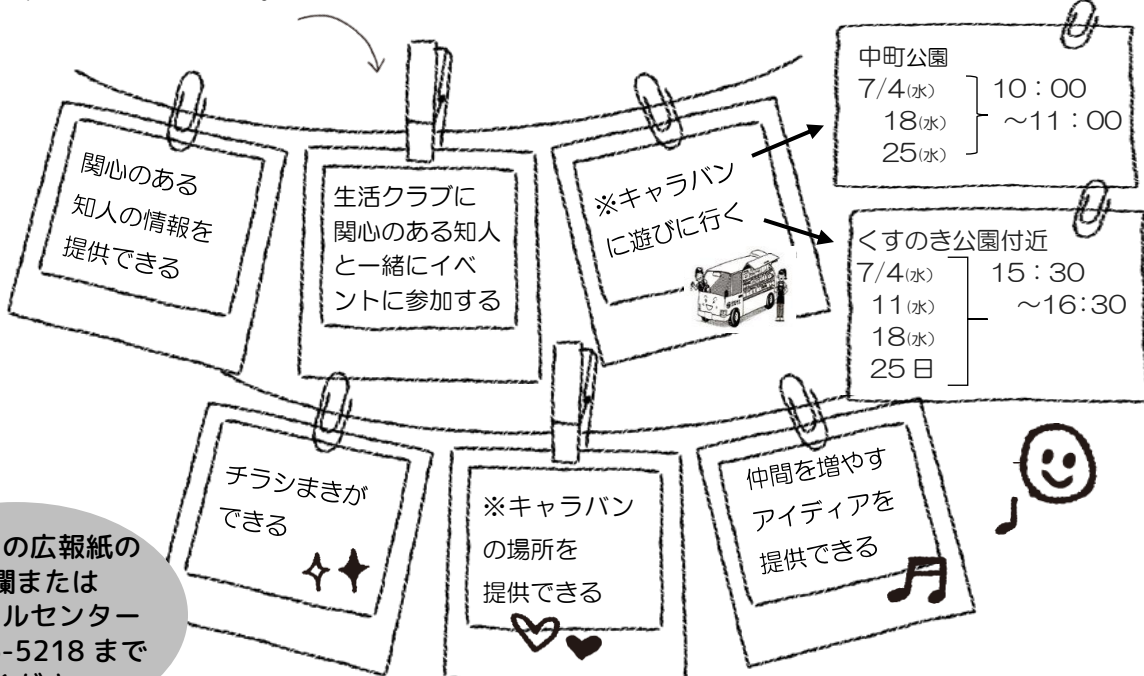 関心のある
知人の情報を
提供できる
生活クラブに
関心のある知人
と一緒にイベ
ントに参加する
※キャラバン
に遊びに行く
中町公園
7/4(水)
18(水)
25(水)
10:00
～11:00
くすのき公園付近
7/4(水)
11(水)
18(水)
25日
15:30
～16:30
チラシまきが
できる
※キャラバン
の場所を
提供できる
仲間を増やす
アイディアを
提供できる
の広報紙の
欄または
ルセンター
-5218まで